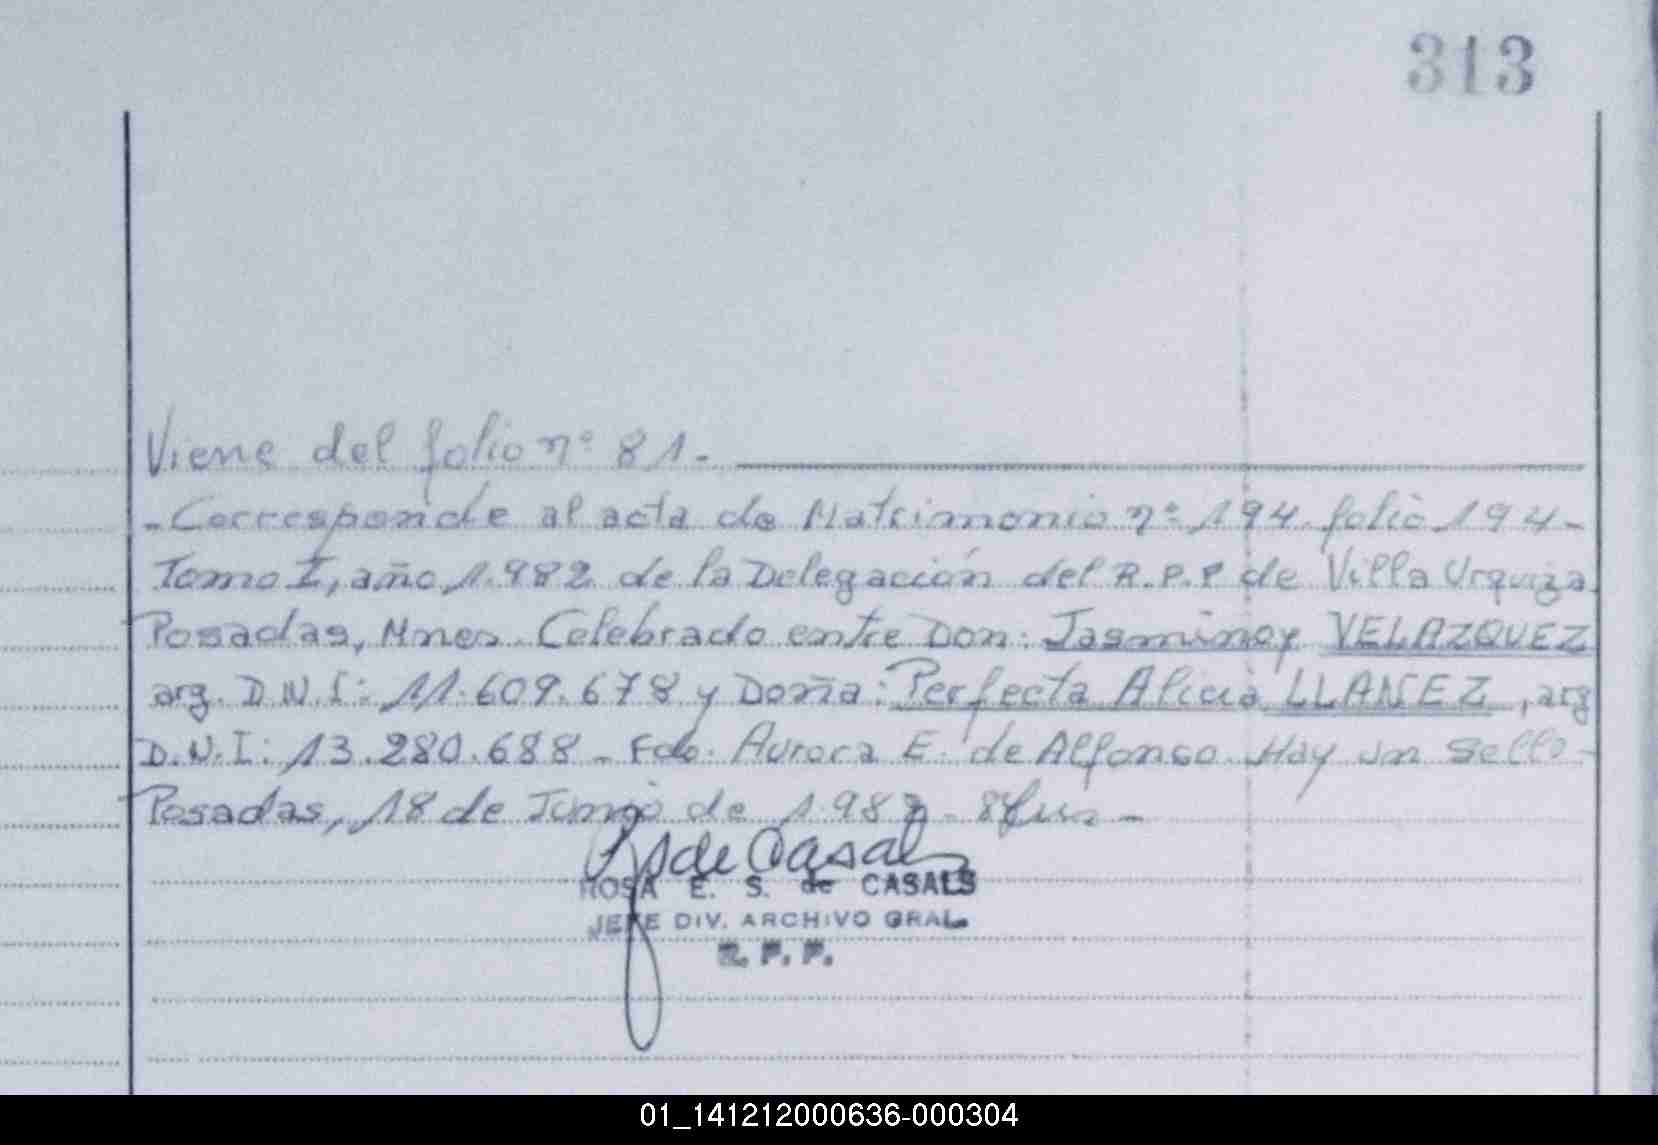 313
Viene del folio nº 81.-
-Corresponde al acta de Matrimonio nº 194. folio 194-
Tomo I, año 1.982 de la Delegación del R.P.P de Villa Urquiza
Posadas, Mnes. Celebrado entre Don: Jasminoy VELAZQUEZ
arg. D.N.I: 11.609.678 y Doña: Perfecta Alicia LLANEZ, arg
D.N.I: 13.280.688 - Fdo. Aurora E. de Alfonso. Hay un sello-
Posadas, 18 de Junio de 1.982-
de Casals
ROSA E. S. de CASALS
JEFE DIV. ARCHIVO GRAL.
R. P. P.
01_141212000636-000304